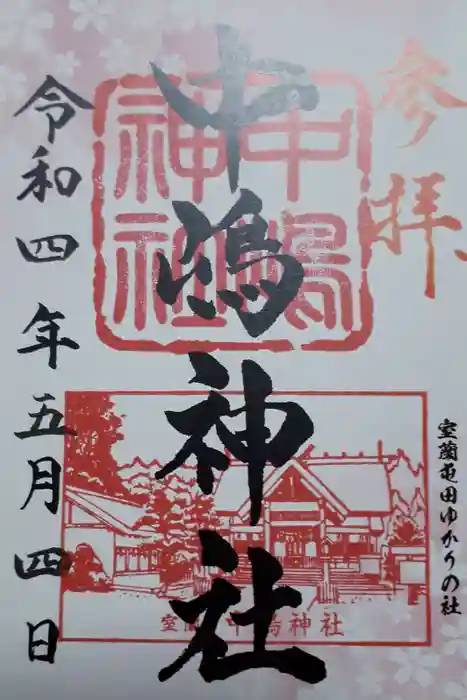 参拝
中嶋神社
中嶋神社
室蘭屯田ゆかりの社
室蘭 中嶋神社
令和四年五月四日